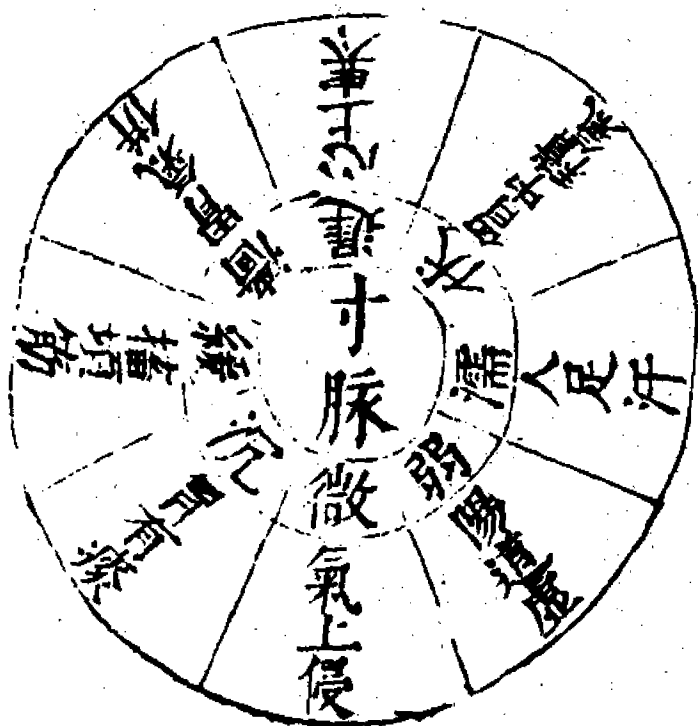 寸脉
遲心上寒
伏胷中積氣
濡人足汗
弱陽道虛
微氣上侵
沉胷有痰
緩搐項筋
濇胃氣併